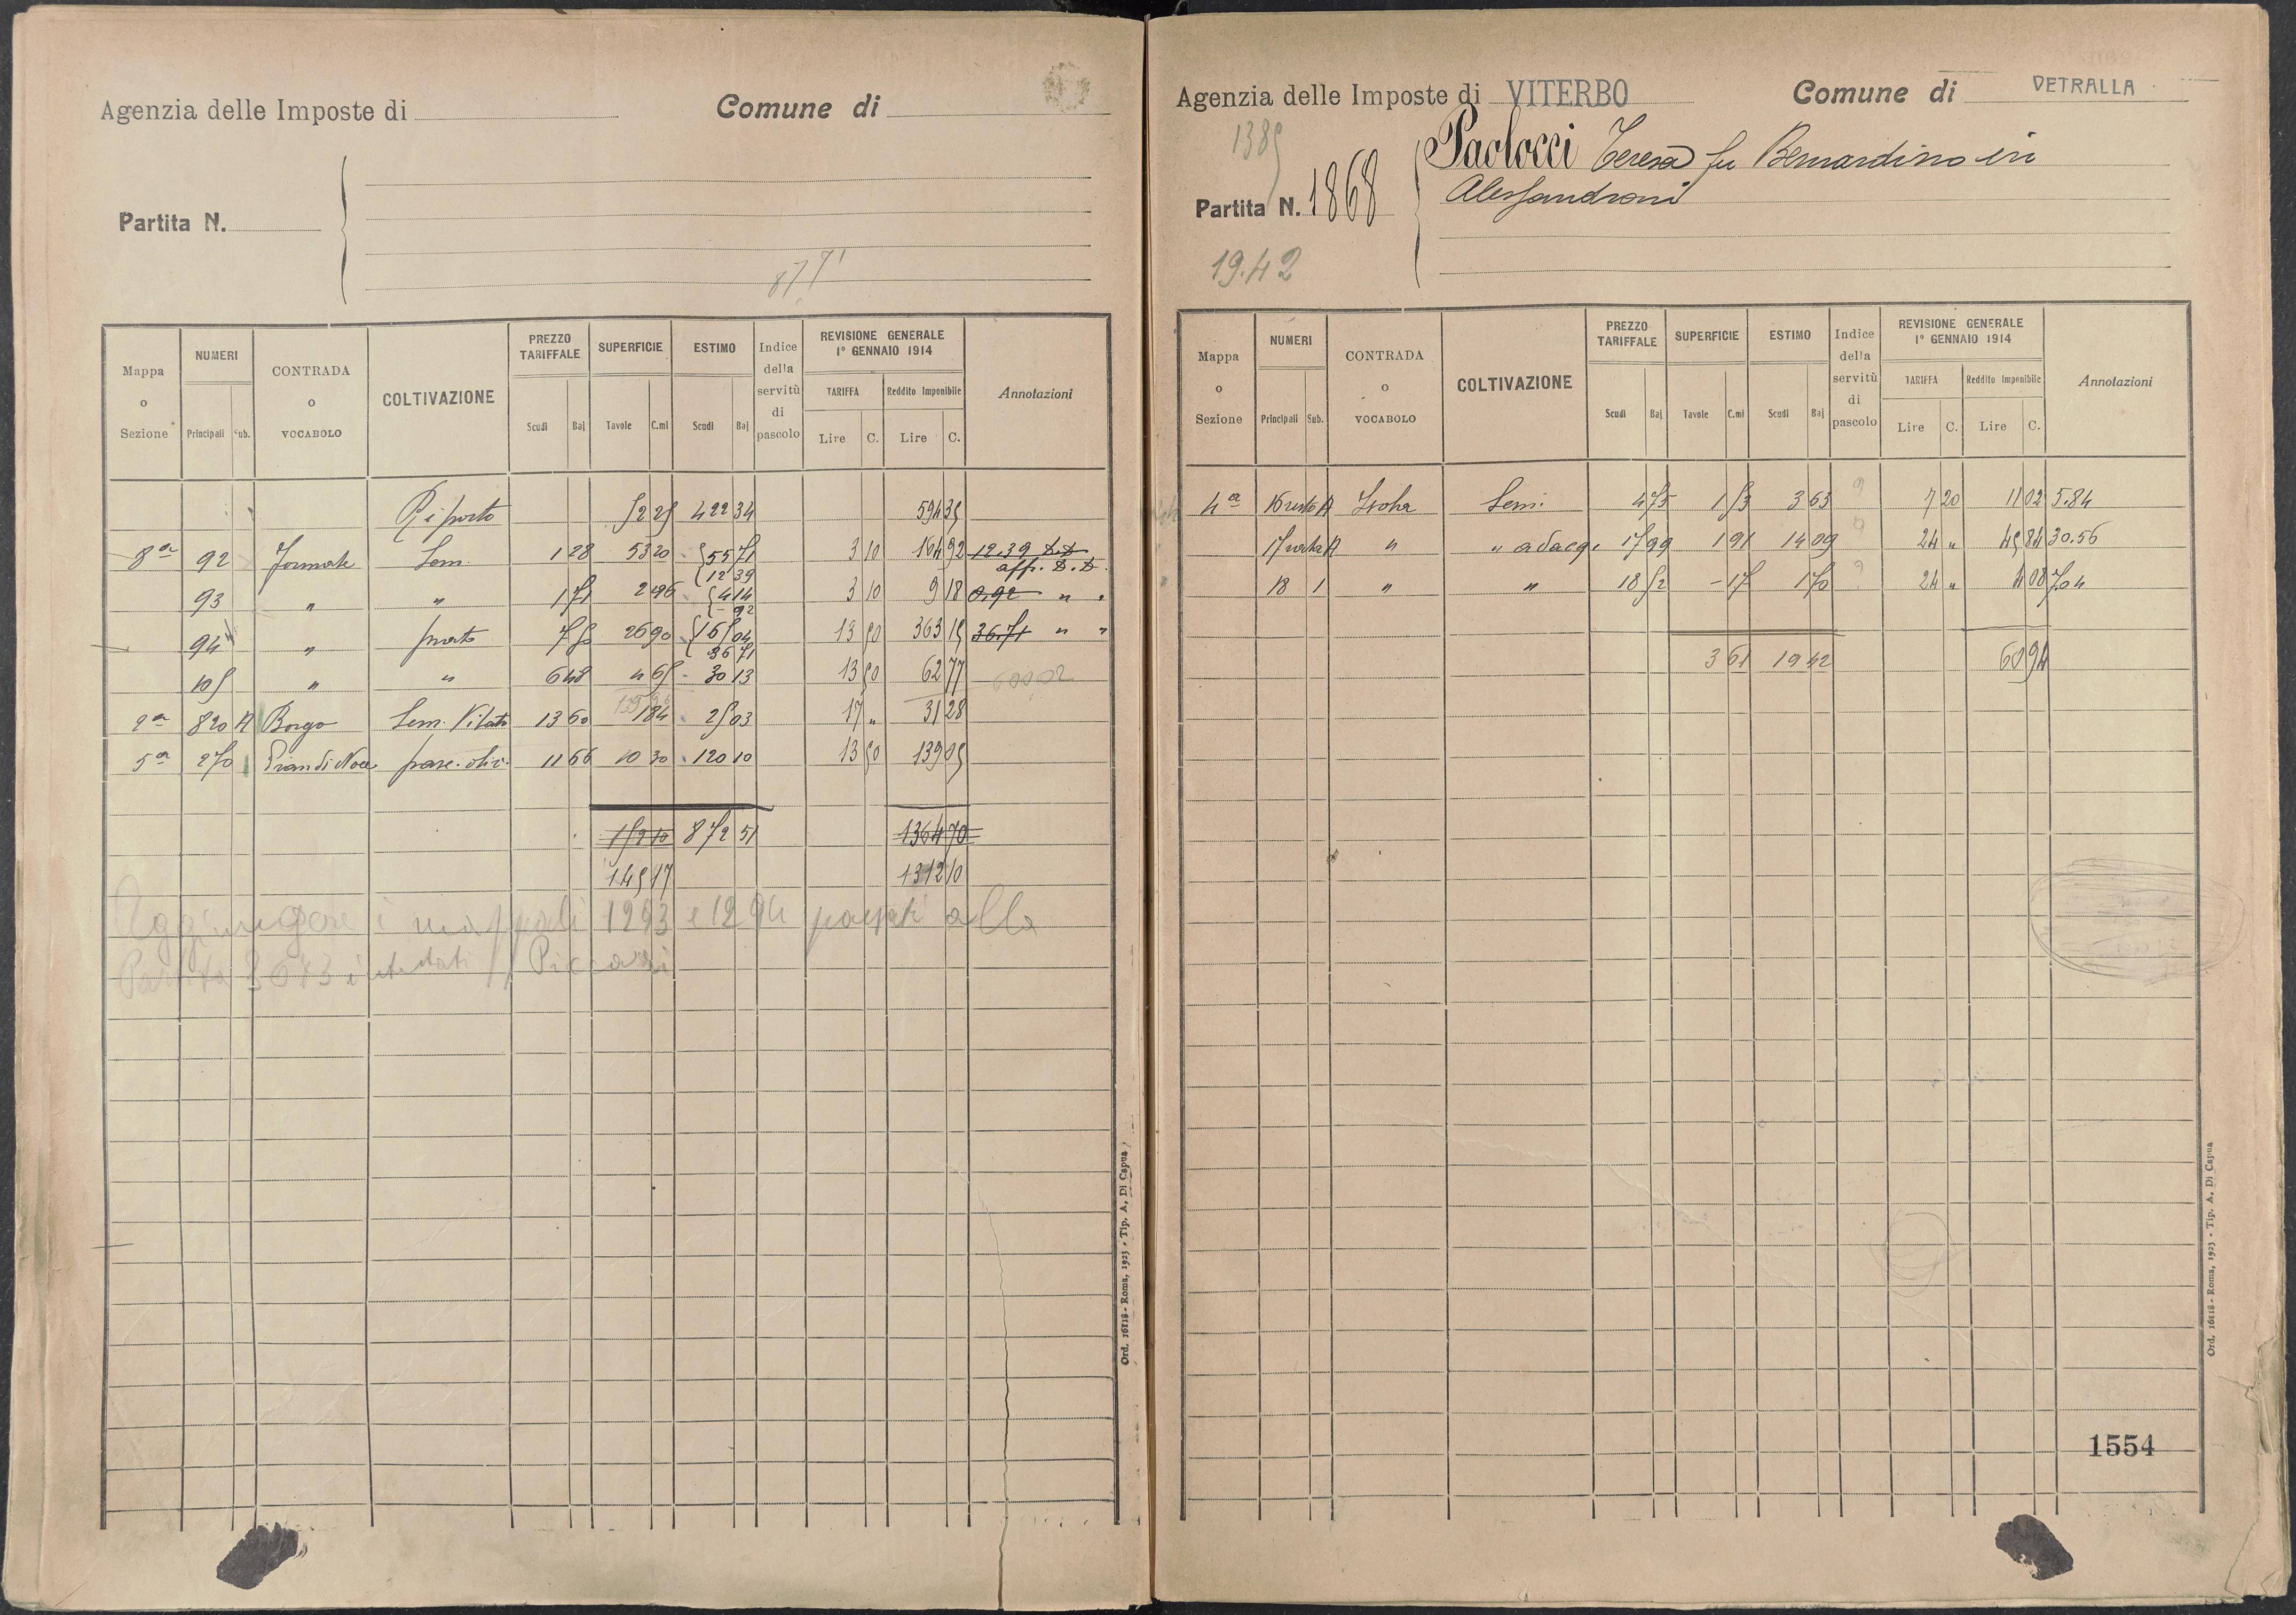 Agenzia delle Imposte di
Comune di
Partita N.
Mappa o Sezione
NUMERI
Principali Sub.
CONTRADA o VOCABOLO
COLTIVAZIONE
PREZZO TARIFFALE
Scudi Baj
SUPERFICIE
Tavole C.mi
ESTIMO
Scudi Baj
Indice della servitù di pascolo
REVISIONE GENERALE 1° GENNAIO 1914
TARIFFA
Lire C.
Reddito Imponibile
Lire C.
Annotazioni
Riporto 422 34
8a 92 Sem. 1 28 53 20 3 10 164 92 12.39
12 39 aff.
93 " " 2 96 4 14 3 10 9 18 0,92 " "
94 " prato 26 90 13 50 363 15 36.71 " "
36 71
105 " " 6 48 4 65 30 13 13 50 62 77
2a 820 A Borgo Sem. Vitato 13 60 1 84 25 03 17 " 31 28
5a 270 Pian di Noce pasc. oliv. 11 66 10 30 120 10 13 50 139 05
872 51 1364 70
145 17 1312 10
Aggiungere i mappali 1293 e 1294 passati alla
Partita 3673 intestati
Ord. 16118 - Roma, 1923 - Tip. A. Di Capua
Agenzia delle Imposte di VITERBO
Comune di VETRALLA
1385
Partita N. 1868
Paolocci Teresa fu Bernardino in
Alessandroni
19.42
Mappa o Sezione
NUMERI
Principali Sub.
CONTRADA o VOCABOLO
COLTIVAZIONE
PREZZO TARIFFALE
Scudi Baj
SUPERFICIE
Tavole C.mi
ESTIMO
Scudi Baj
Indice della servitù di pascolo
REVISIONE GENERALE 1° GENNAIO 1914
TARIFFA
Lire C.
Reddito Imponibile
Lire C.
Annotazioni
4a 16 resto A Sem. 4 75 1 53 3 63 7 20 11 02 5.84
17 resto A " " adacq. 1 91 14 09 24 " 45 84 30.56
18 1 " " 18 52 - 17 1 70 24 " 4 08 7.04
3 61 19 42 60 94
1554
Ord. 16118 - Roma, 1923 - Tip. A. Di Capua